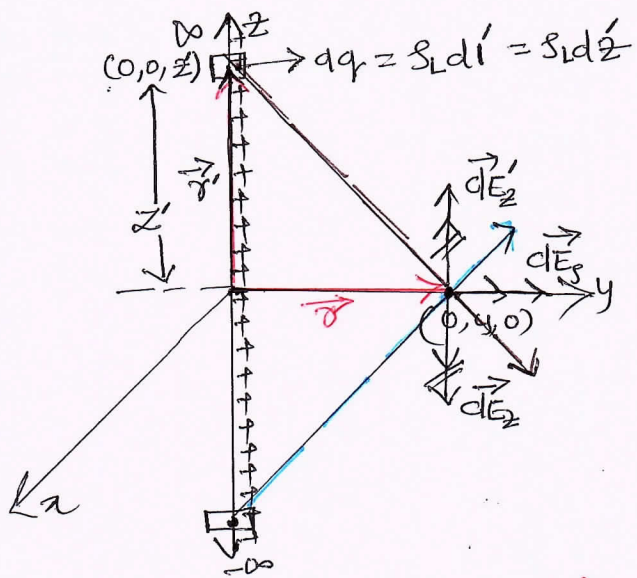 ∞ z
(0,0,z') dq = ρL dl' = ρL dz'
r⃗'
z'
dE⃗z'
dE⃗ρ
y
r⃗
(0,y,0)
dE⃗z
x
-∞